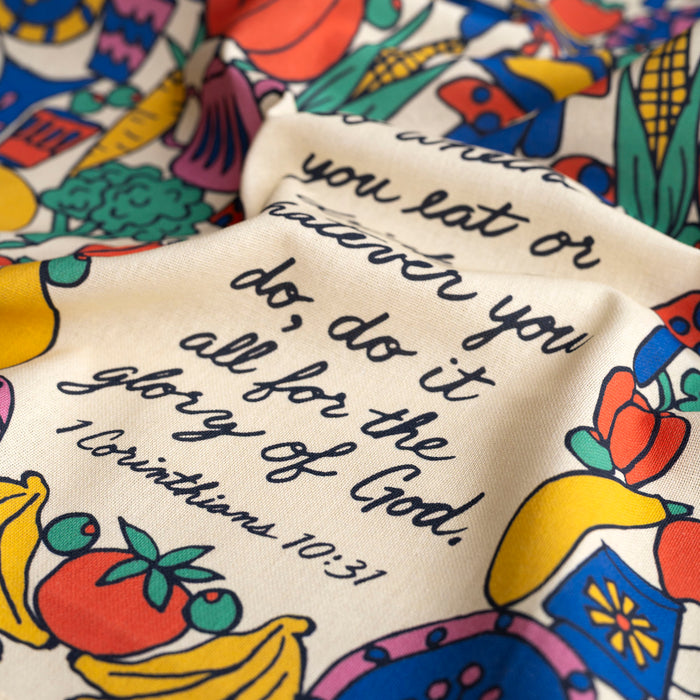 you eat or
whatever you
do, do it
all for the
glory of God.
1 Corinthians 10:31